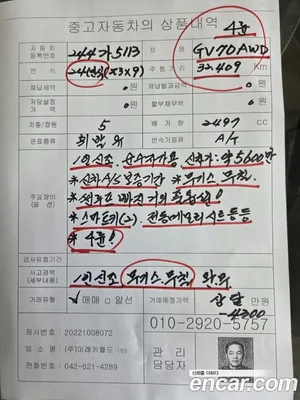 중고자동차의 상품내역
4륜
자동차등록번호 244가5113 차명 GV70 AWD
연식 24년식(23×9) 주행거리 32,409 Km
체납세액 0원 체납벌과금액 0원
저당설정가액 0원 할부채무액 0원
차종/정원 5 배기량 2497 CC
연료종류 휘발유 변속기종류 A/T
주요장비(옵션) 1인신조 신차가: 약5600만
*신차A/S보증기간 *무키스 무칙
*스마트키(2), 전동메모리시트등등
*4륜!
검사유효기간
사고경력(세부내용) 1인신조 무키스.무칙 완무
거래형태 ✓매매 □알선 거래예정가액 상담 만원
-4300
010-2920-5757
제시번호 : 20221008072
업소명 : (주)미래카월드 (인)
전화번호 : 042-621-4289
관리담당자
신뢰를 더하다
encar.com